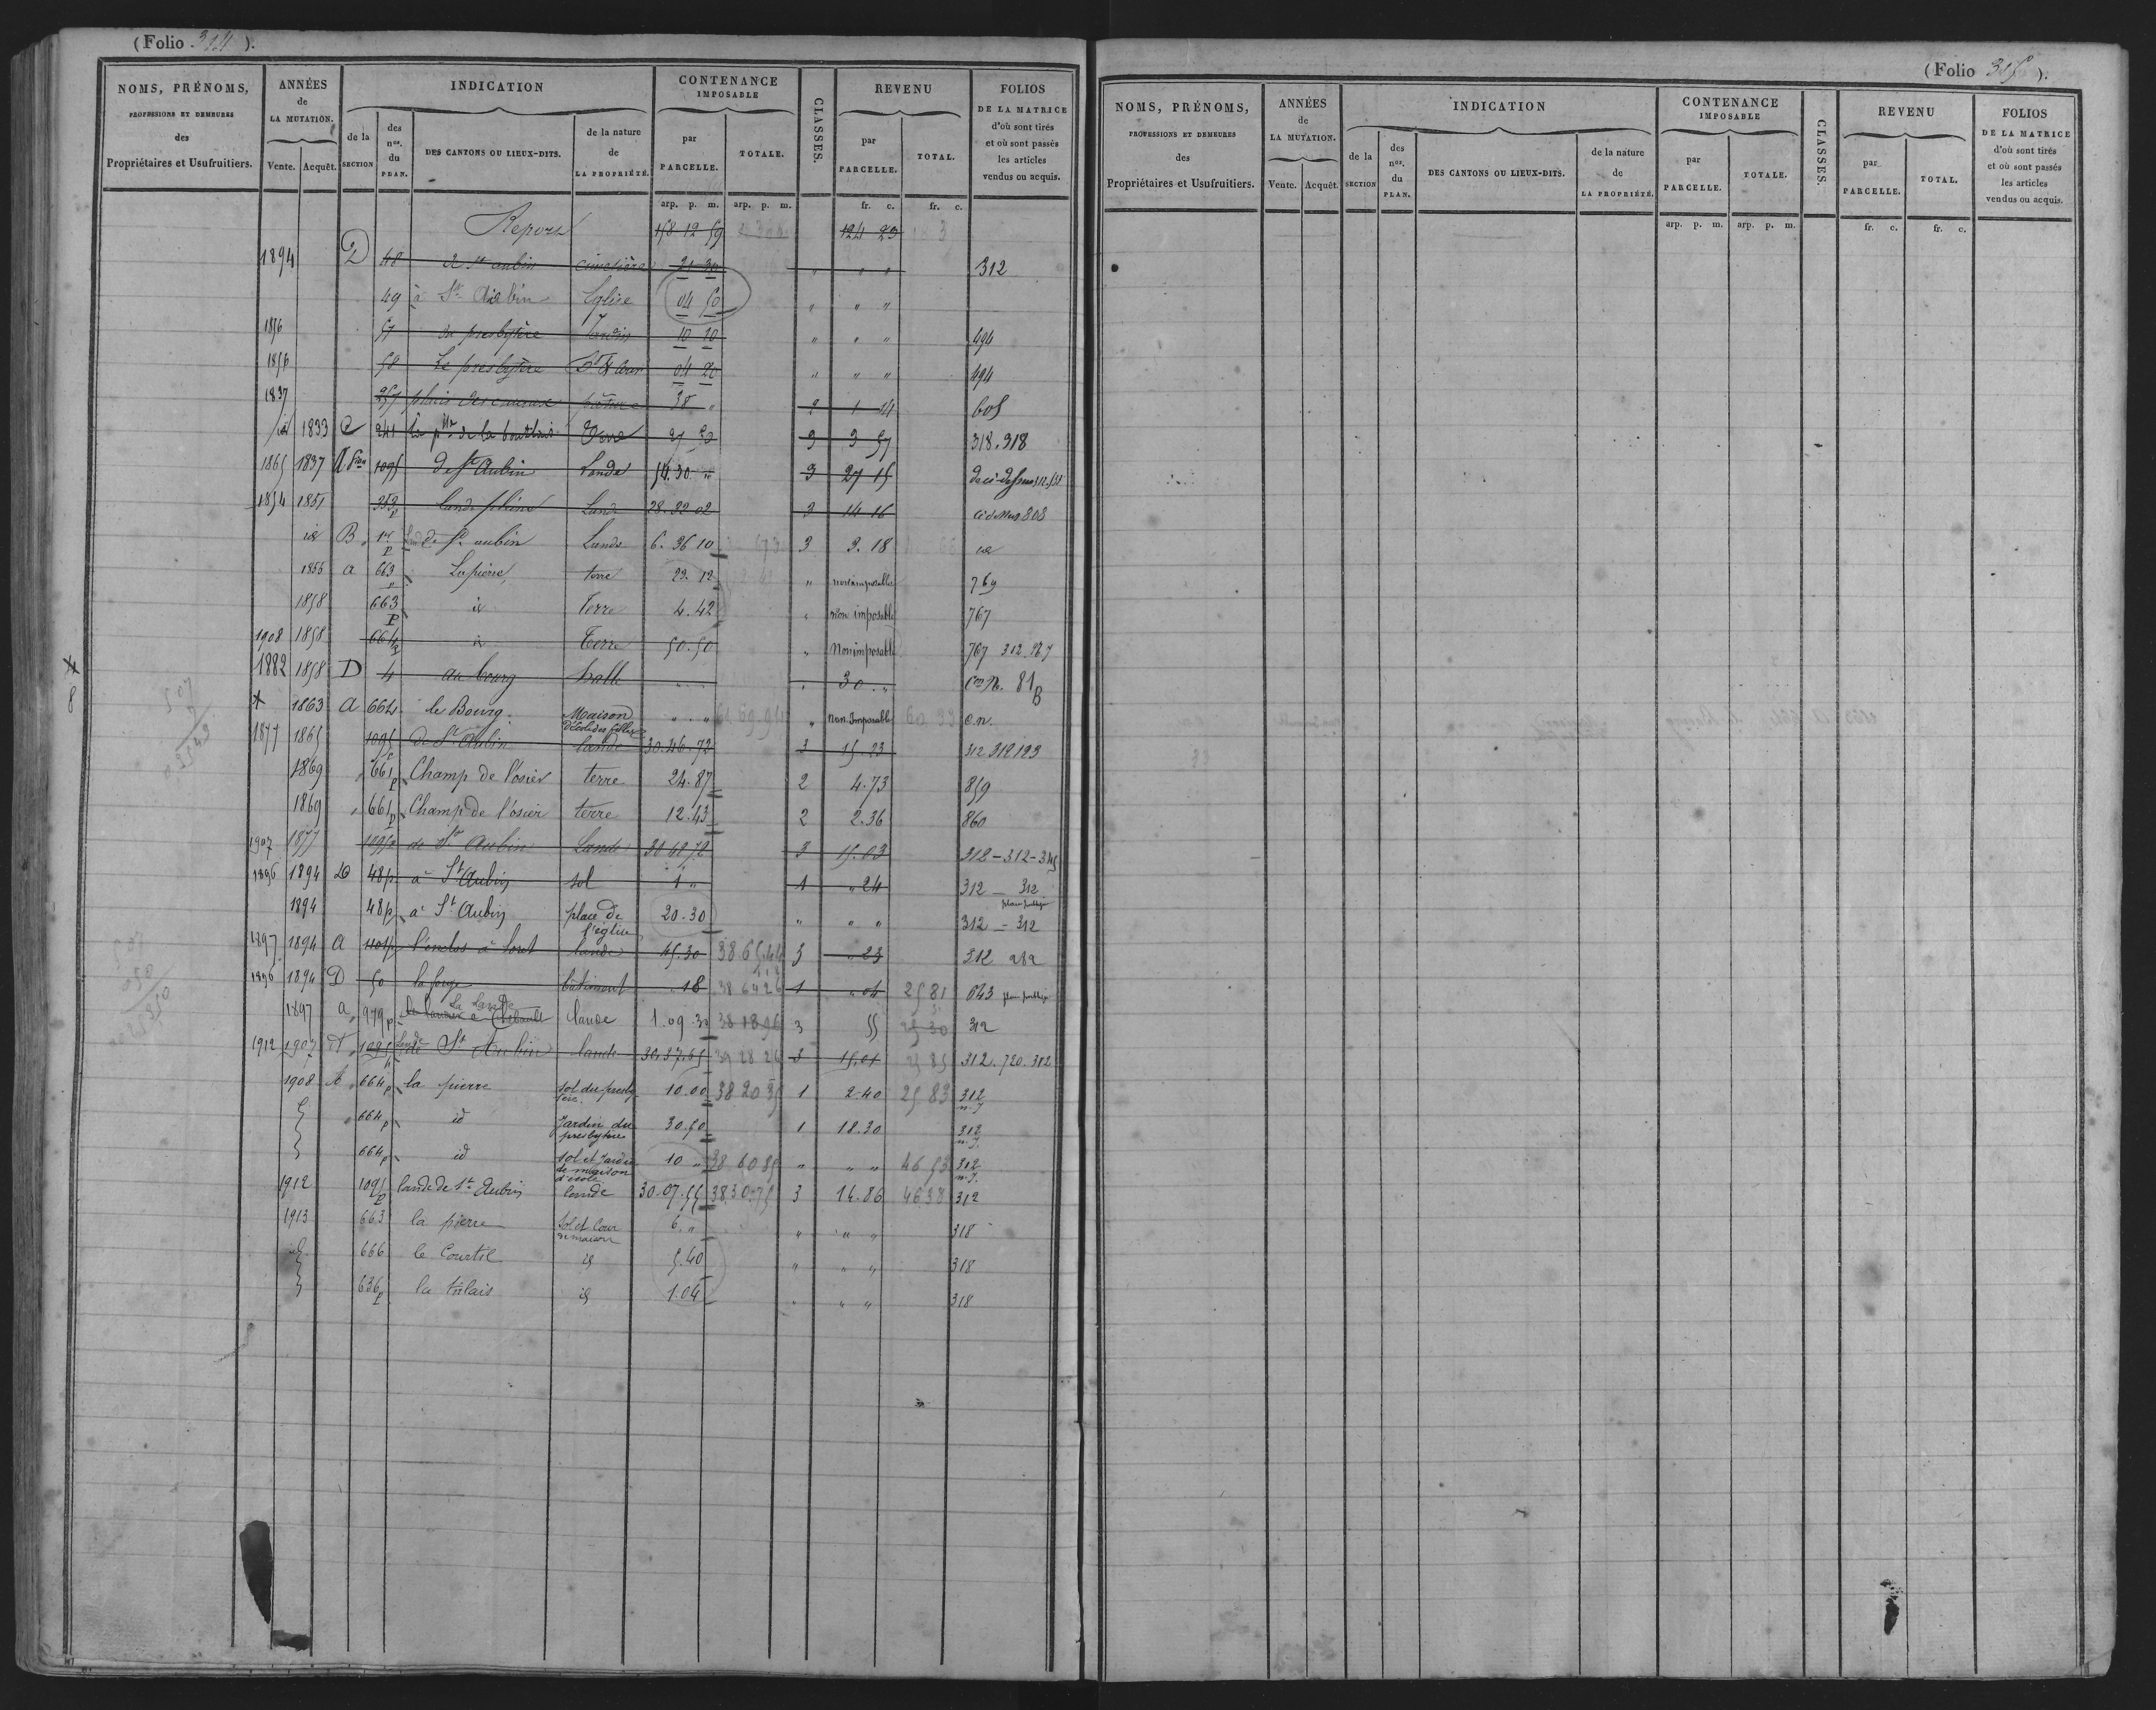 (Folio 314 ).
NOMS, PRÉNOMS,
PROFESSIONS ET DEMEURES
des
Propriétaires et Usufruitiers.
ANNÉES
de
LA MUTATION.
Vente. Acquêt.
INDICATION
de la
SECTION
des
nos.
du
PLAN.
DES CANTONS OU LIEUX-DITS.
de la nature
de
LA PROPRIÉTÉ.
CONTENANCE
IMPOSABLE
par
PARCELLE.
TOTALE.
CLASSES.
REVENU
par
PARCELLE.
TOTAL.
FOLIOS
DE LA MATRICE
d'où sont tirés
et où sont passés
les articles
vendus ou acquis.
arp. p. m. arp. p. m. fr. c. fr. c.
Report 158 12 59 124 23
1894 D 48 à St aubin cimetière 21 30 " " " 312
49 à St Aubin Eglise 04 50 " " "
1856 57 du presbytère Jardin 10 20 " " " 494
1856 58 Le presbytère 04 20 " " " 494
1837 257 pâture 38 " 2 1 14 608
id 1833 C 241 Terre 27 50 3 3 57 318.318
1865 1837 A 1095 de St Aubin Lande 54.30 " 3 27 15
1854 1851 353p Lande 28.32 02 3 14 16 ci dessus 808
id B 1er p Lande St aubin Lande 6. 36 10 3 3. 18 id
1855 a 663 p La pierre terre 23. 12 " non imposable 769
1858 663 p id Terre 4.42 " non imposable 767
1908 1858 664 p id Terre 50.50 " Non imposable 767 312
1882 1858 D 4 au bourg halle " " " 30 . "
8
1863 A 662 le Bourg. Maison d'école des filles " . " " Non Imposable c.n.
1877 1865 1095 p de St Aubin lande 30.46.72 3 15.23 312 312 123
1869 " 661 p Champ de l'osier terre 24.87 2 4.73 859
1869 " 661 p Champ de l'osier terre 12.43 2 2.36 860
1907 1877 1095 p de St Aubin Lande 3 15.03 312 - 312 - 315
1896 1894 D 48 p. à St Aubin sol 1 " 1 " 24 312 - 312
1894 48 p à St Aubin place de l'église 20.30 " " " 312 - 312
1897 1894 A 1101 p l'enclos lande 45.30 38.65.44 3 " 23 312
1896 1894 D 50 la forge bâtiment " 18 38 64 26 1 " 04 25 81 643
1897 a 979 p La Lande lande 1.09.30 38 18 96 3 55 25 30 312
1912 1907 A 1095 p Lande St Aubin lande 30.37.65 39 28 26 3 15.01 25 85 312.720.312
1908 A 664 p la pierre sol du presbytère 10.00 38 20 35 1 2.40 25 83 312
664 p id Jardin du presbytère 30.50 1 18.30 312
664 p id sol et Jardin de maison d'école 10 " 38 60 85 " " " 46 53 312
1912 1095 p lande de St Aubin lande 30.07.55 38.30.75 3 14.86 46 38 312
1913 663 la pierre Sol et Cour de maison 6. " " " " 318
id 666 le Courtil id 5.40 " " " 318
636 p id 1.04 " " " 318
(Folio 315 ).
NOMS, PRÉNOMS,
PROFESSIONS ET DEMEURES
des
Propriétaires et Usufruitiers.
ANNÉES
de
LA MUTATION.
Vente. Acquêt.
INDICATION
de la
SECTION
des
nos.
du
PLAN.
DES CANTONS OU LIEUX-DITS.
de la nature
de
LA PROPRIÉTÉ.
CONTENANCE
IMPOSABLE
par
PARCELLE.
TOTALE.
CLASSES.
REVENU
par
PARCELLE.
TOTAL.
FOLIOS
DE LA MATRICE
d'où sont tirés
et où sont passés
les articles
vendus ou acquis.
arp. p. m. arp. p. m. fr. c. fr. c.